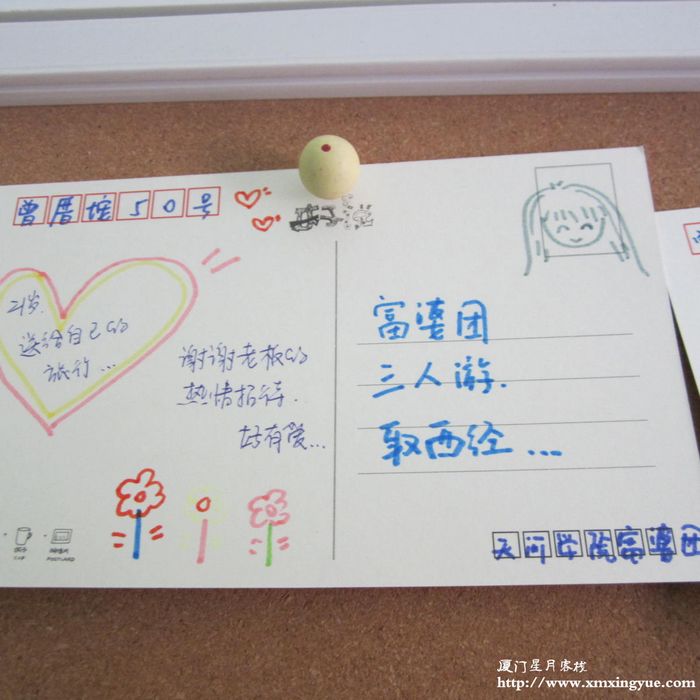 曾厝垵50号
21岁.
送给自己的
旅行...
谢谢老板的
热情招待.
好有爱...
富婆团
三人游.
取西经...
天问学院富婆团
杯子
CUP
明信片
POSTCARD
厦门星月客栈
http://www.xmxingyue.com